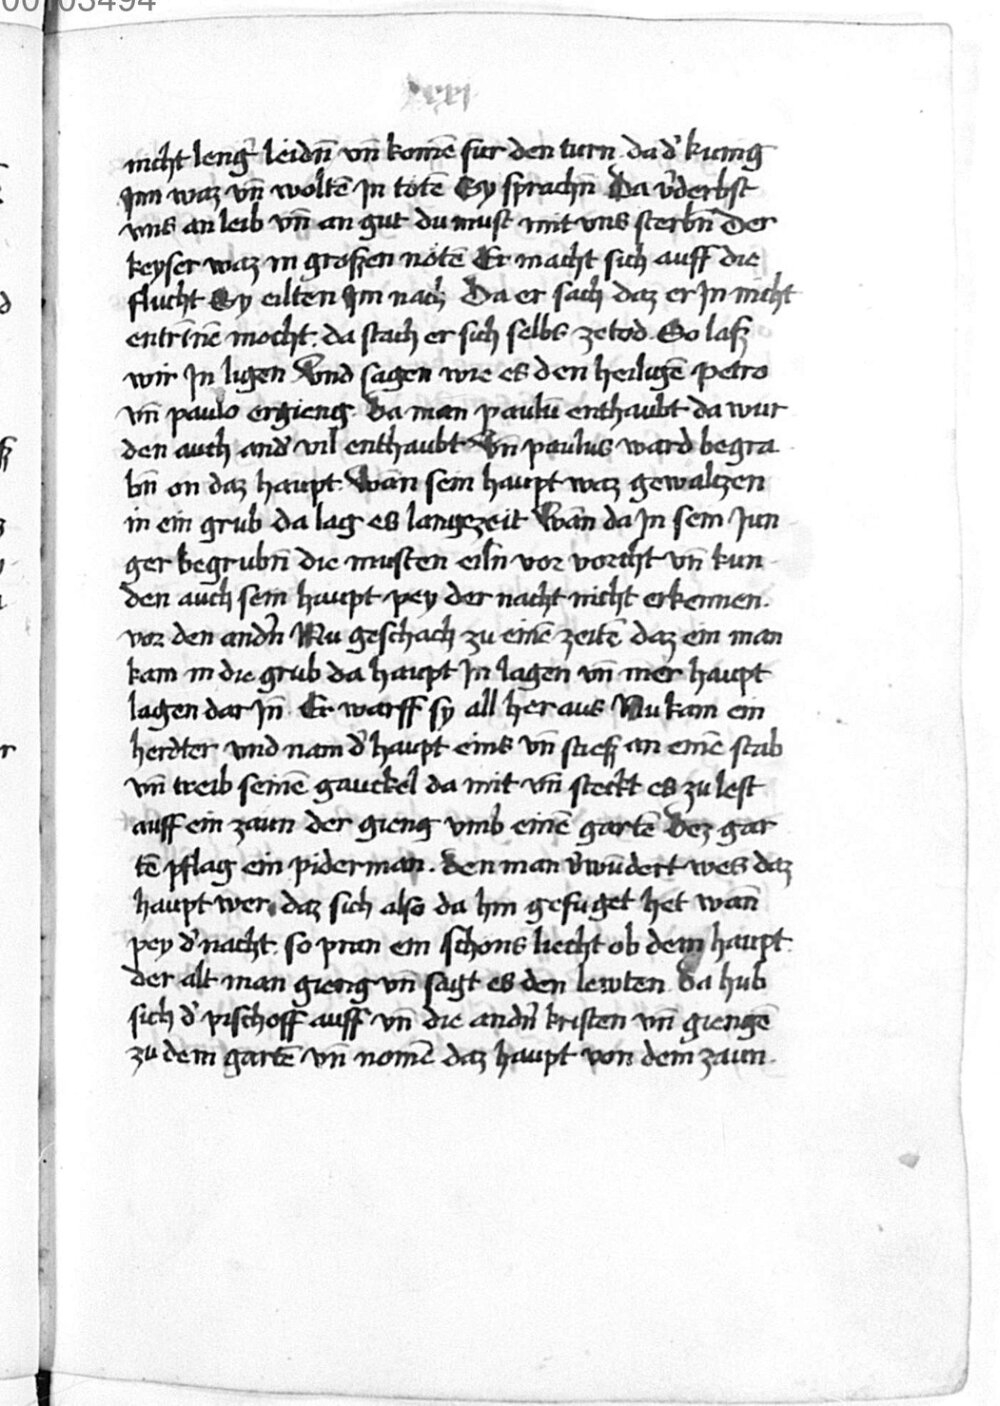 00103494
xxi
nicht leng̾ leidn̄ vn̄ komē fur den turn da d̾ kunig
Inn waz vn̄ woltē In totē Sy sprachn̄ Da v̾derbst
vns an leib vn̄ an gut du must mit vns sterbn̄ Der
keyser waz in großen nötē Er macht sich auff die
flucht Sy eilten Im nach Da er sach daz er In nicht
entrinē mocht. da stach er sich selbs zetod. So laß
wir In ligen Vnd sagen wie es den heiligē petro
vn̄ paulo ergieng. Da man paulū enthaubt da wur
den auch and̾ vil enthaubt Vn̄ paulus ward begra
bn̄ on daz haupt. Wān sein haupt waz gewaltzen
in ein grub da lag es langezeit Wān da In sein Iun
ger begrubn̄ die musten eiln̄ vor vorcht vn̄ kun
den auch sein haupt pey der nacht nicht erkennen.
vor den andn̄ Nu geschach zu einē zeitē daz ein man
kam in die grub da haupt In lagen vn̄ mer haupt
lagen dar In̄. Er warff sy all her aus Nu kam ein
herdter vnd nam d̾ haupt eins vn̄ stieß an einē stab
vn̄ treib seinē gauckel da mit vn̄ steckt es zu lest
auff ein zaun der gieng vmb einē gartē Dez gar
tē pflag ein piderman. Den man v̾wūdert wes daz
haupt wer. daz sich also da hin gefuget het wān
pey d̾ nacht. so pran ein schons liecht ob dem haupt.
der alt man gieng vn̄ sagt es den lewten Da hub
sich d̾ pischoff auff vn̄ die andn̄ kristen vn̄ giengē
zu dem gartē vn̄ nomē daz haupt von dem zaun.